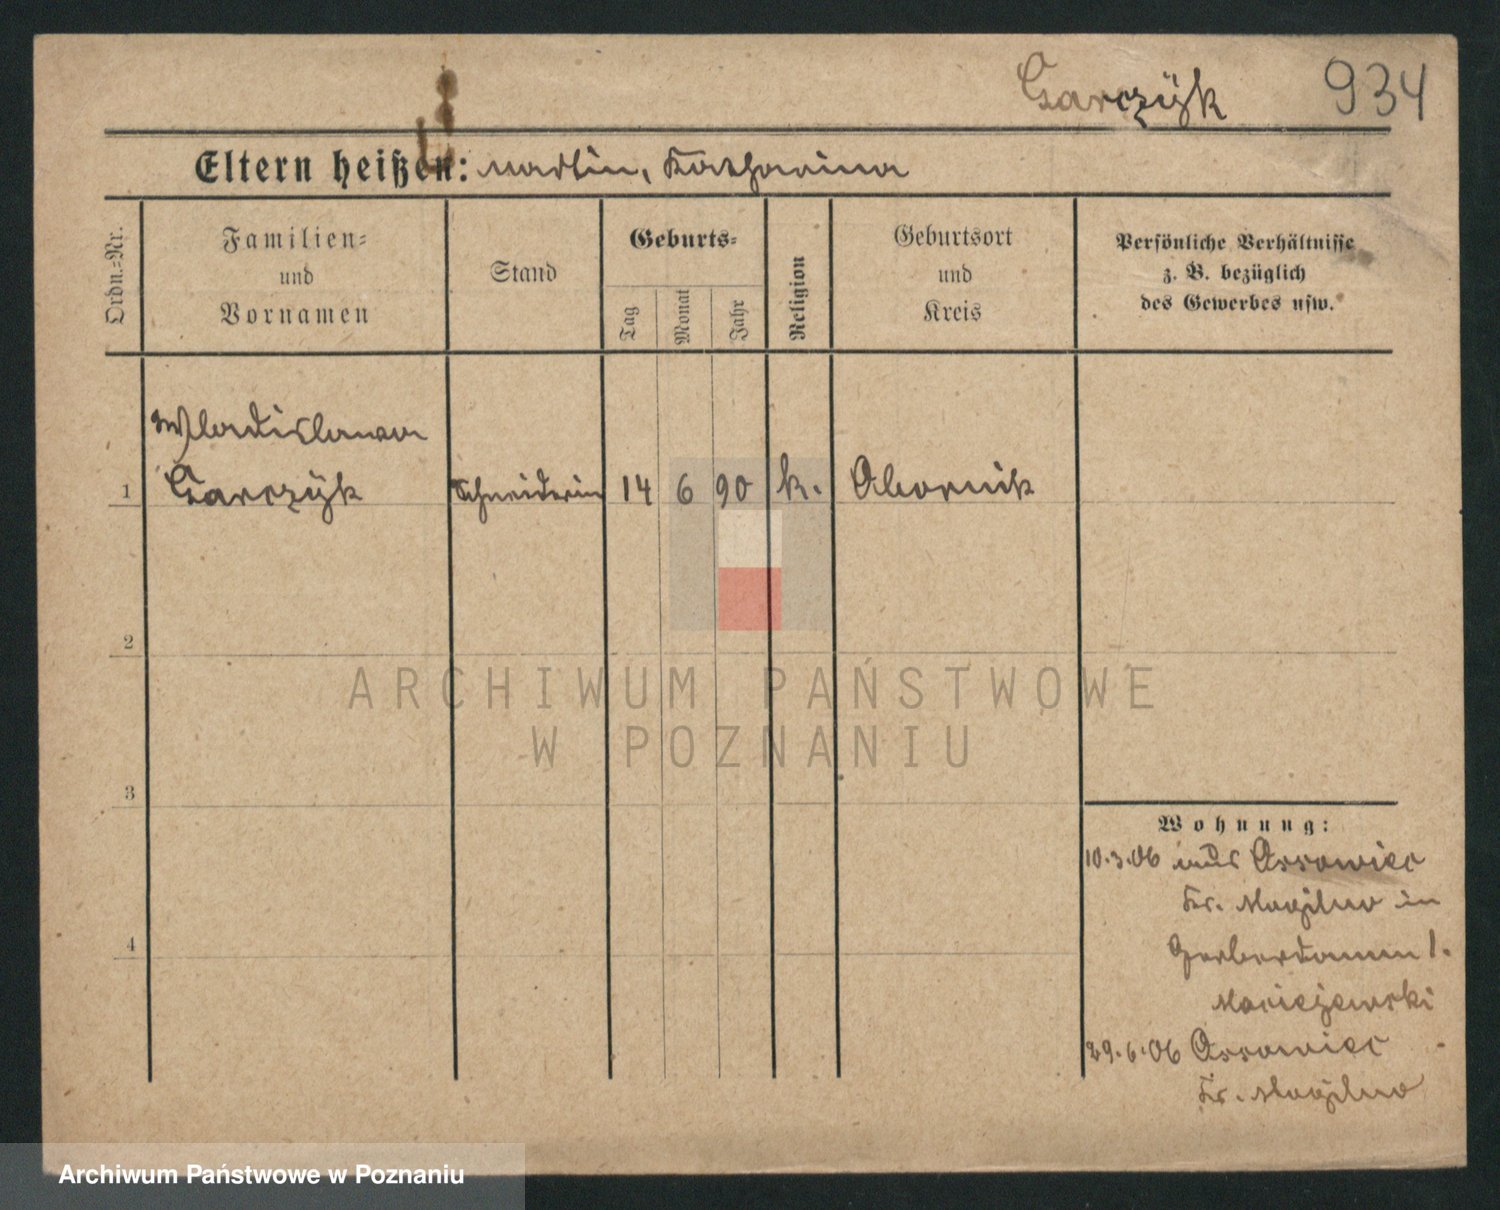 Garczÿk 934
Eltern heißen: Martin, Katharina
Ordn.-Nr.
Familien-
und
Vornamen
Stand
Geburts-
Tag
Monat
Jahr
Religion
Geburtsort
und
Kreis
Persönliche Verhältnisse
z. B. bezüglich
des Gewerbes usw.
Wladislawa
1 Garczÿk Schneiderin 14 6 90 k. Obornik
2
3
4
ARCHIWUM PAŃSTWOWE
W POZNANIU
Wohnung:
10.3.06 aus Ossowiec
Kr. Mogilno in
Gerberdamm 1.
Maciejewski
29.6.06 Ossowiec
Kr. Mogilno
Archiwum Państwowe w Poznaniu